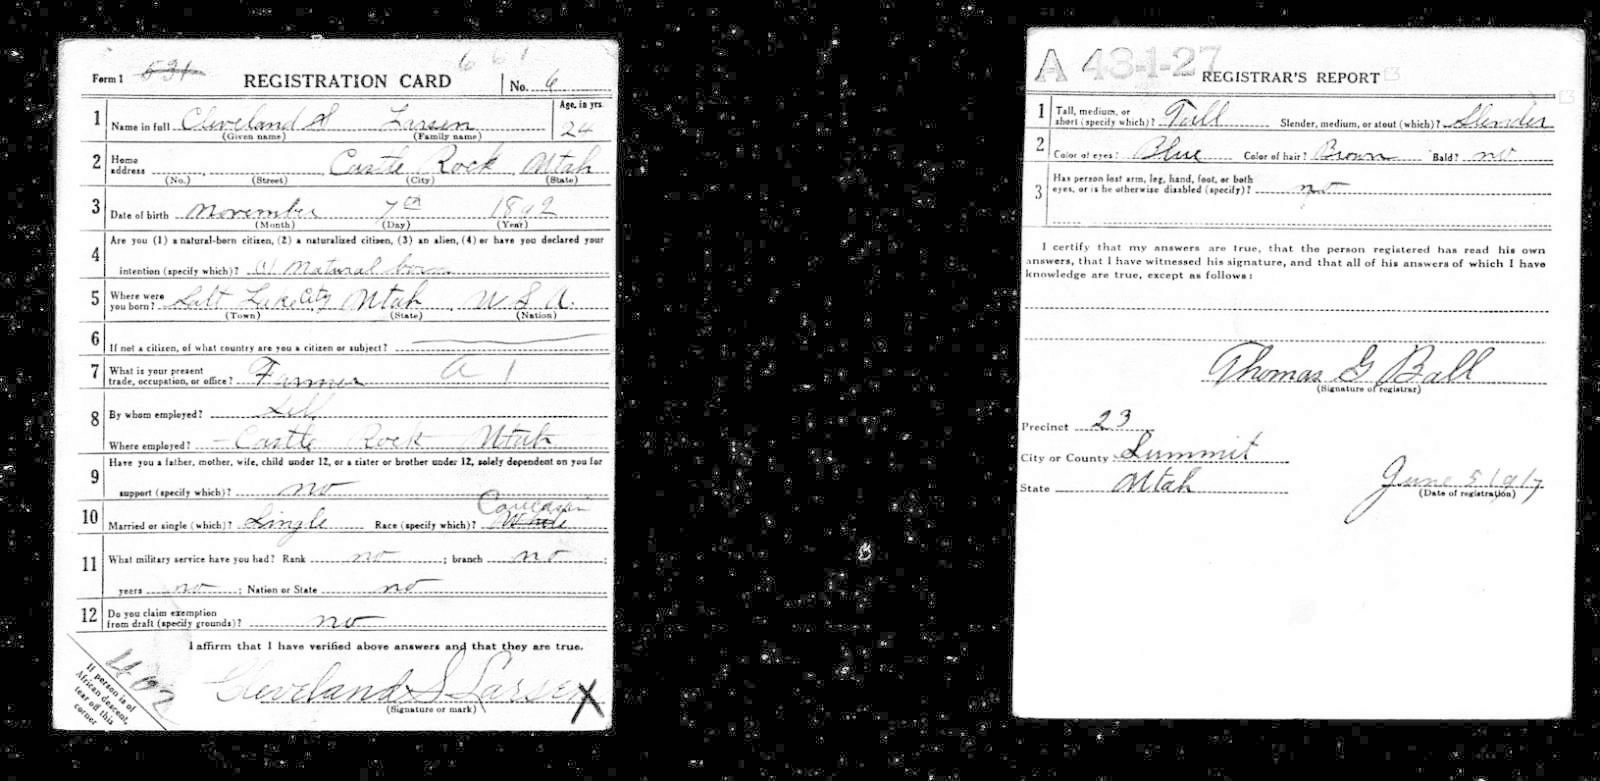 661
Form 1 531 REGISTRATION CARD No. 6
1 Name in full Cleveland S Larsen Age, in yrs. 24
(Given name) (Family name)
2 Home address Castle Rock Utah
(No.) (Street) (City) (State)
3 Date of birth November 7th 1892
(Month) (Day) (Year)
4 Are you (1) a natural-born citizen, (2) a naturalized citizen, (3) an alien, (4) or have you declared your
intention (specify which)? (1) Natural born
5 Where were you born? Salt Lake City Utah U S A.
(Town) (State) (Nation)
6 If not a citizen, of what country are you a citizen or subject?
7 What is your present trade, occupation, or office? Farmer A 1
8 By whom employed? Self
Where employed? Castle Rock Utah
9 Have you a father, mother, wife, child under 12, or a sister or brother under 12, solely dependent on you for
support (specify which)? no
Caucasian
10 Married or single (which)? Single Race (specify which)? White
11 What military service have you had? Rank no ; branch no ;
years no ; Nation or State no
12 Do you claim exemption from draft (specify grounds)? no
I affirm that I have verified above answers and that they are true.
Cleveland S Larsen X
(Signature or mark)
If person is of
African descent,
tear off this
corner
A 43-1-27 REGISTRAR'S REPORT
1 Tall, medium, or short (specify which)? Tall Slender, medium, or stout (which)? Slender
2 Color of eyes? Blue Color of hair? Brown Bald? no
3 Has person lost arm, leg, hand, foot, or both eyes, or is he otherwise disabled (specify)? no
I certify that my answers are true, that the person registered has read his own
answers, that I have witnessed his signature, and that all of his answers of which I have
knowledge are true, except as follows:
Thomas G Ball
(Signature of registrar)
Precinct 23
City or County Summit
State Utah June 5 1917
(Date of registration)